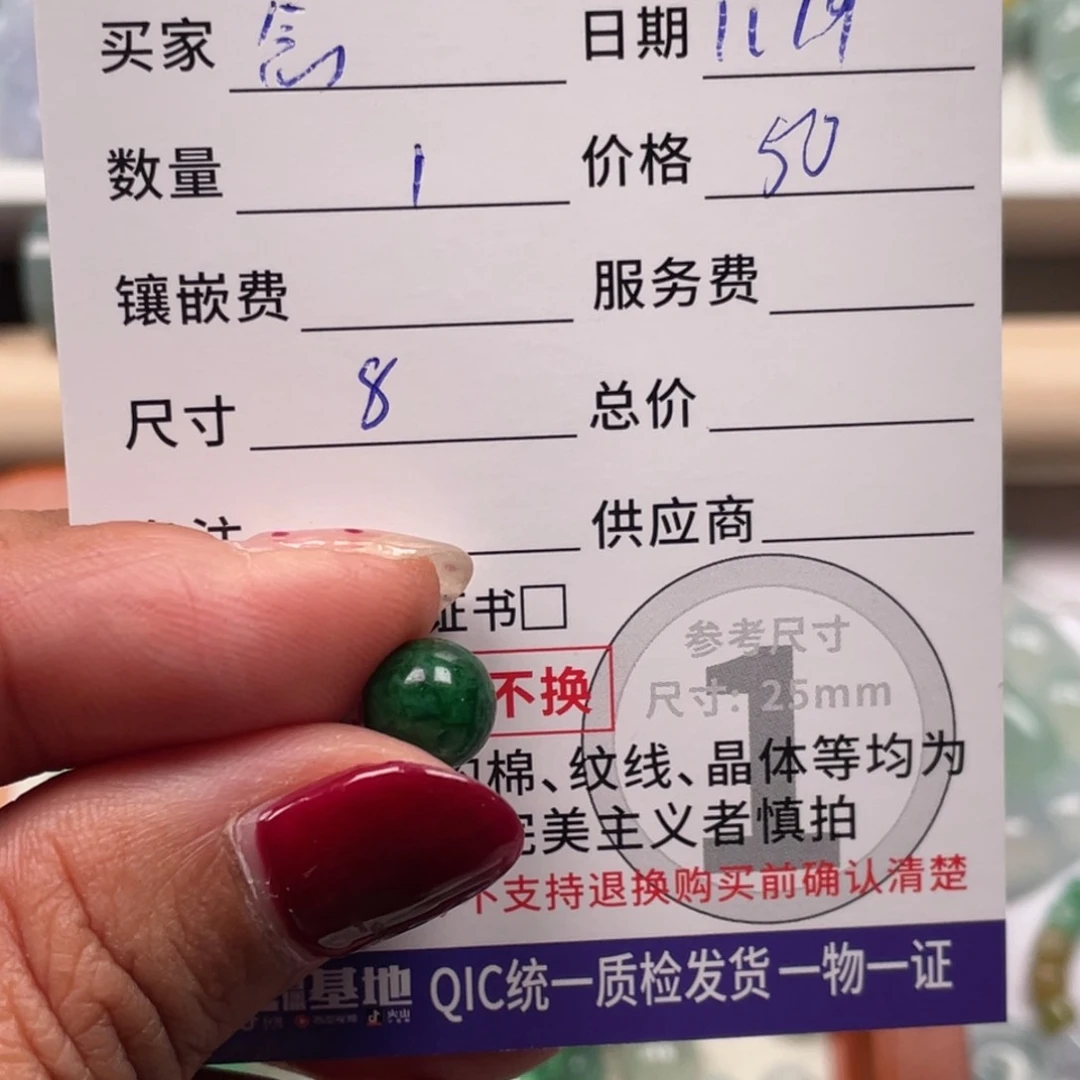 买家 念 日期 11 19
数量 1 价格 50
镶嵌费 服务费
尺寸 8 总价
注 供应商
证书□
参考尺寸
不换 尺寸: 25mm
1
棉、纹线、晶体等均为
完美主义者慎拍
不支持退换购买前确认清楚
基地 QIC统一质检发货 一物一证
火山